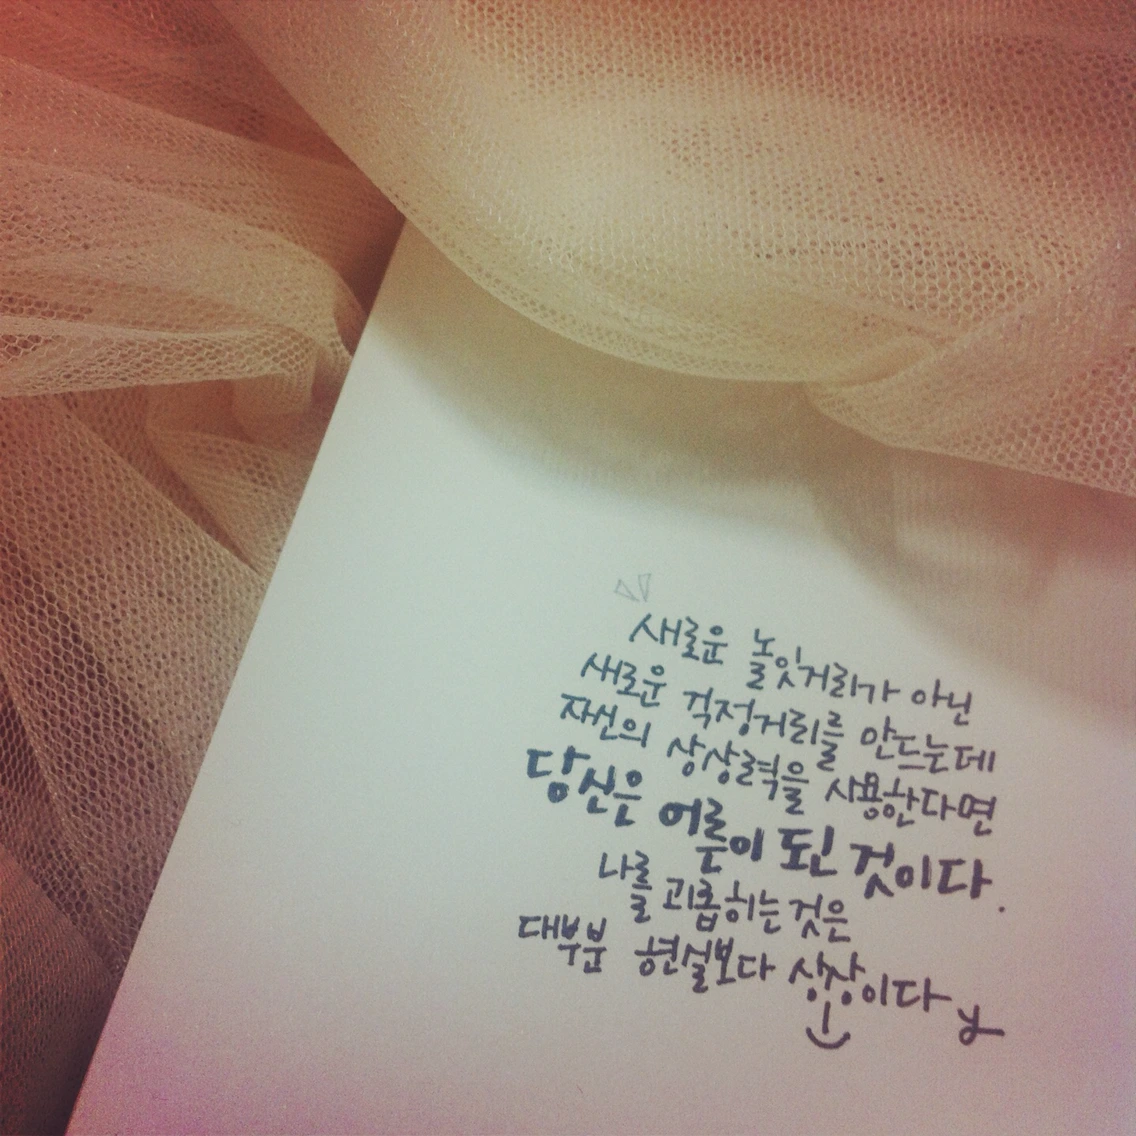 새로운 놀잇거리가 아닌
새로운 걱정거리를 만드는데
자신의 상상력을 사용한다면
당신은 어른이 된 것이다.
나를 괴롭히는 것은
대부분 현실보다 상상이다